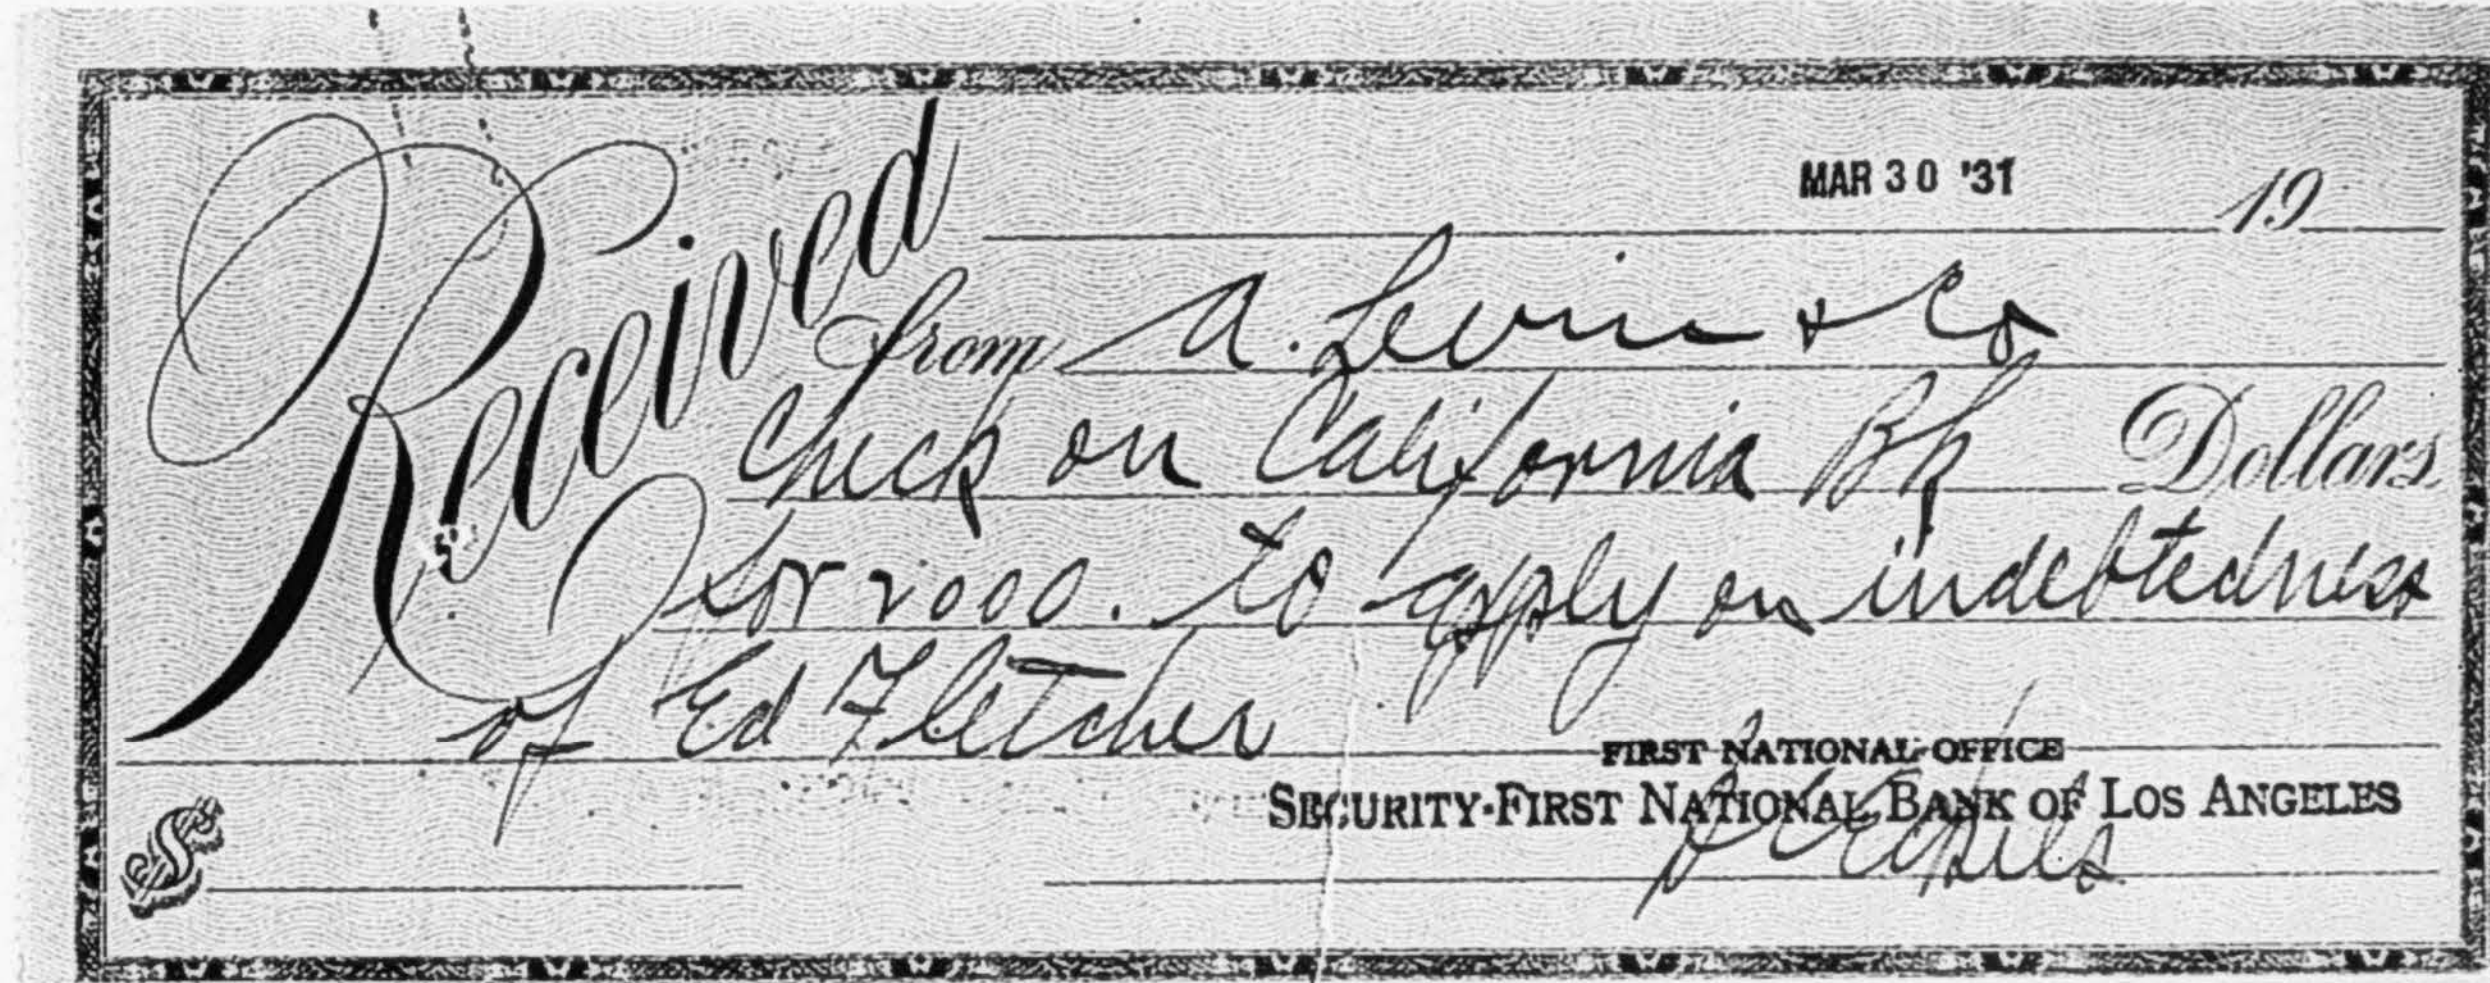 MAR 30 '31 19
Received from A. Levin & Co
Check on California Bk Dollars
for 2000. to apply on indebtedness
of Ed Fletcher
FIRST NATIONAL OFFICE
SECURITY-FIRST NATIONAL BANK OF LOS ANGELES
$